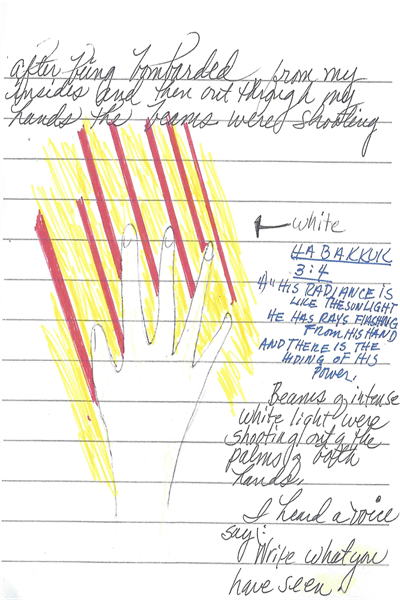 after being bombarded from my
insides and then out through my
hands the beams were shooting
white
HABAKKUK
3:4
4) "HIS RADIANCE IS
LIKE THE SUNLIGHT
HE HAS RAYS FLASHING
FROM HIS HAND
AND THERE IS THE
HIDING OF HIS
POWER.
Beams of intense
white light were
shooting out of the
palms of both
hands.
I heard a voice
say:
Write what you
have seen.